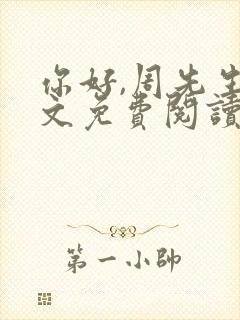 你好,周先生
文免費閱讀
第一小帥